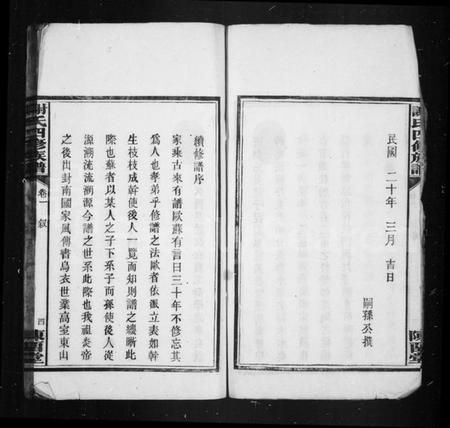 謝氏四修族譜
民國 二十年 三月 吉日
嗣孫公撰
陳留堂
續修譜序
家乘古來有譜歐蘇有言曰三十年不修忘其
為人也孝弟乎修譜之法歐者依派立表如幹
生枝枝成幹使後人一覽而知則譜之纘晰此
際也蘇者以某人之子下系子而孫使後人從
源溯流流溯源今譜之世系此際也我祖炎帝
之後出封南國家風傳書烏衣世業高室東山
謝氏四修族譜
卷一 叙
四
陳留堂